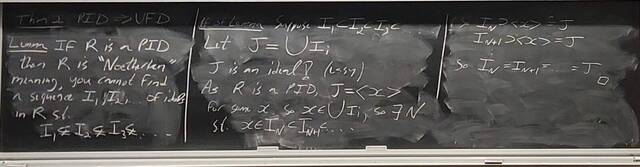 Thm 2 PID ⇒ UFD
Lemma IF R is a PID
then R is "Noetherian"
meaning, you cannot find
a sequence I₁, I₂, ... of ideals
in R s.t.
I₁ ⊊ I₂ ⊊ I₃ ⊊ ...
Pf of Lemma Suppose I₁ ⊂ I₂ ⊂ I₃ ⊂ ...
Let J = ⋃ Iᵢ
J is an ideal! (easy)
As R is a PID, J = <x>
for some x. So x ∈ ⋃ Iᵢ, so ∃ N
st. x ∈ I_N ⊂ I_N+1 ⊂ ...
So I_N ⊃ <x> = J
I_N+1 ⊃ <x> = J
So I_N = I_N+1 = ... = J □